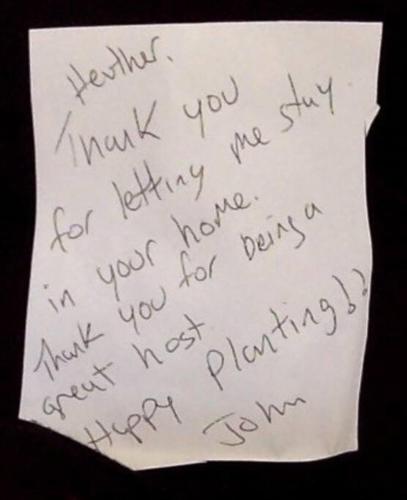 Heather.
Thank you
for letting me stay
in your home.
Thank you for being a
great host
Happy Planting!!
John